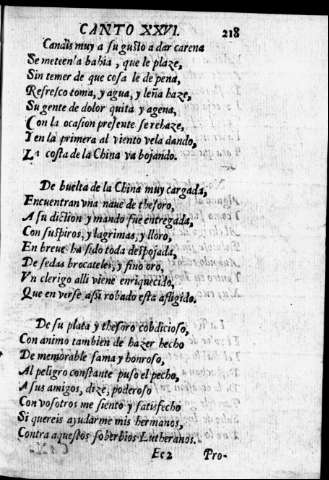 CANTO XXVI. 218
Candis muy a su gusto a dar carena
Se meten'a bahia, que le plaze,
Sin temer de que cosa le de pena,
Refresco toma, y agua, y leña haze,
Su gente de dolor quita y agena,
Con la ocasion presente se rehaze,
I en la primera al viento vela dando,
La costa de la China va bojando.
De buelta de la China muy cargada,
Encuentran vna naue de thesoro,
A su diction y mando fue entregada,
Con suspiros, y lagrimas, y lloro,
En breue ha sido toda despojada,
De sedas brocateles, y fino oro,
Vn clerigo alli viene enriquecido,
Que en verse assi robado esta afligido.
De su plata y thesoro cobdicioso,
Con animo tambien de hazer hecho
De memorable fama y honroso,
Al peligro constante puso el pecho,
A sus amigos, dize, poderoso
Con vosotros me siento y satisfecho
Si quereis ayudarme mis hermanos,
Contra aquestos soberbios Lutheranos.
Ee2 Pro-